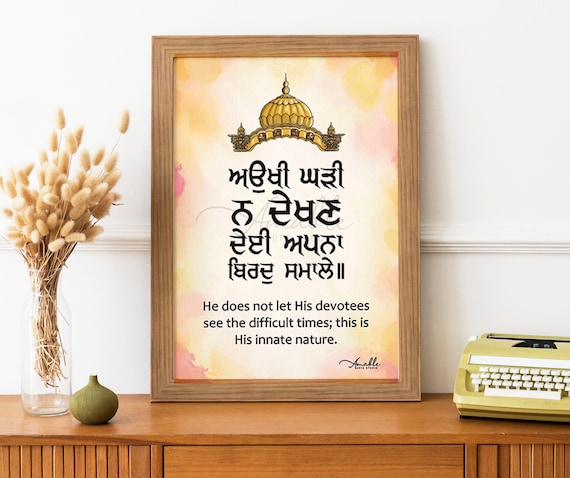 ਅਉਖੀ ਘੜੀ
ਨ ਦੇਖਣ
ਦੇਈ ਅਪਨਾ
ਬਿਰਦੁ ਸਮਾਲੇ॥
He does not let His devotees
see the difficult times; this is
His innate nature.
Amable